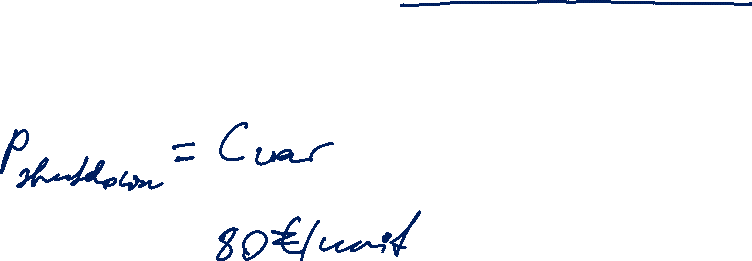 P shutdown = Cvar
80€/unit